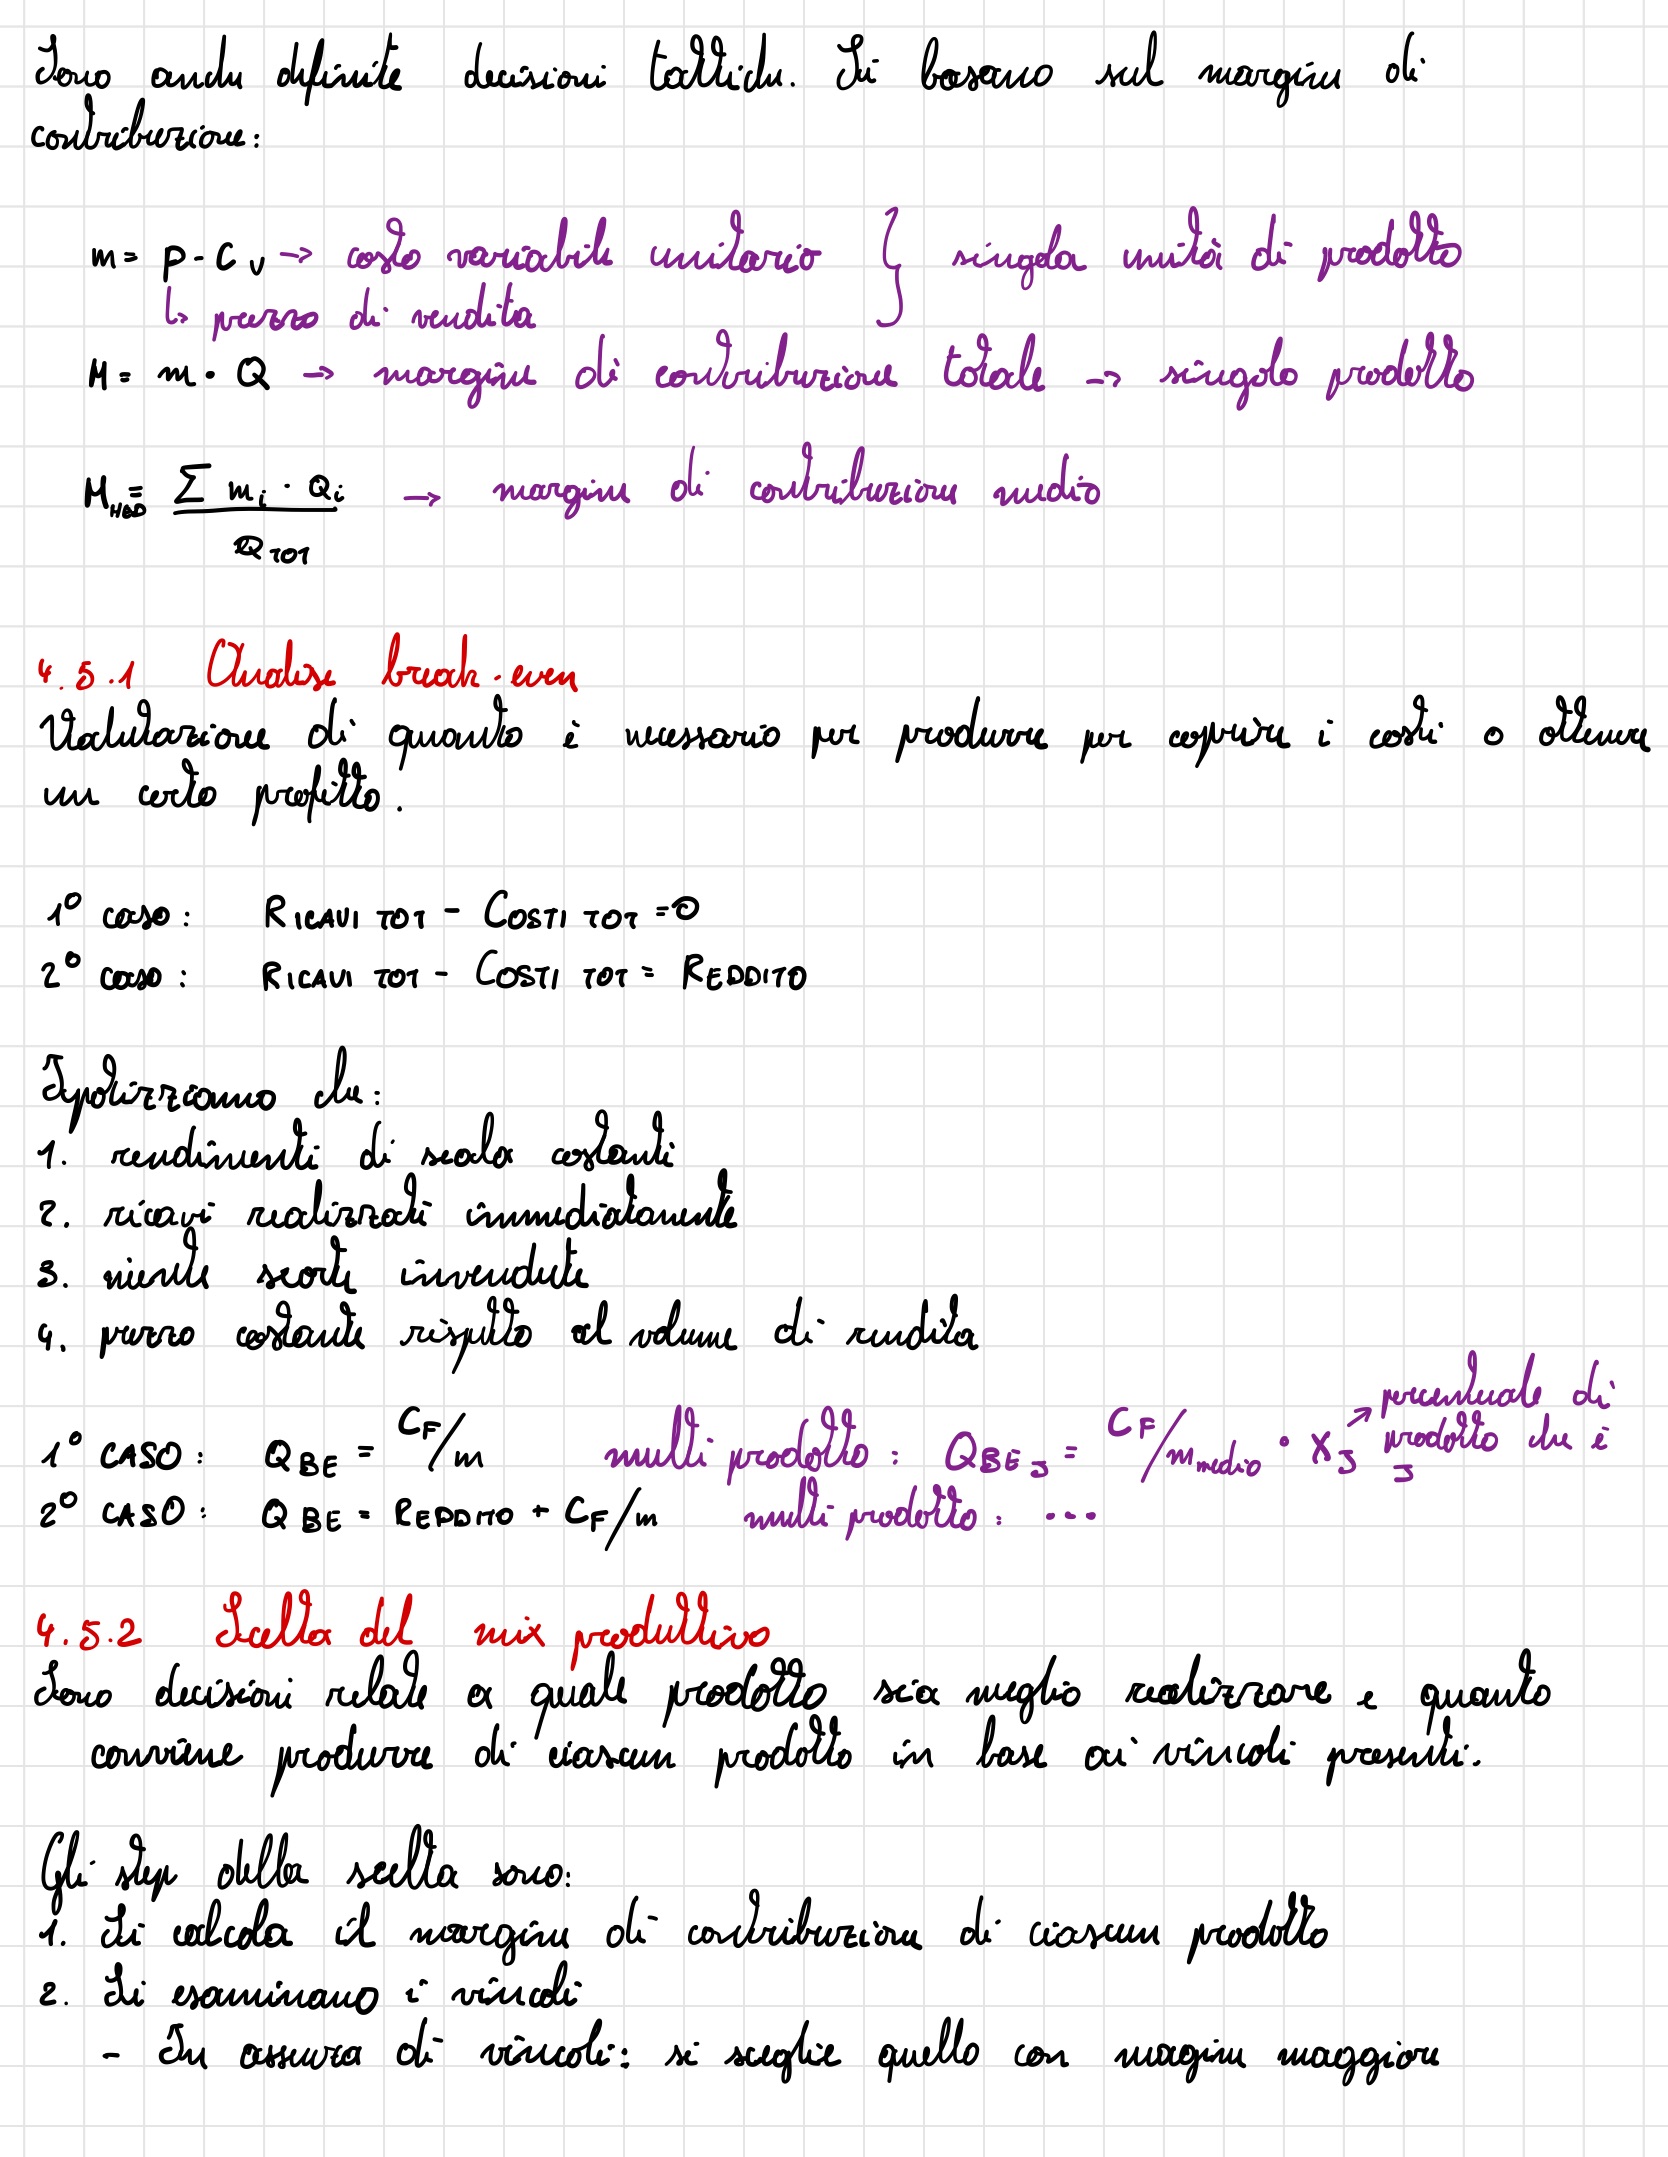 Sono anche definite decisioni tattiche. Si basano sul margine di
contribuzione:
m = p - Cv → costo variabile unitario } singola unità di prodotto
↳ prezzo di vendita
M = m · Q → margine di contribuzione totale → singolo prodotto
M_MED = Σ mi · Qi / Q TOT → margine di contribuzione medio
4.5.1 Analisi break-even
Valutazione di quanto è necessario per produrre per coprire i costi o ottenere
un certo profitto.
1° caso: RICAVI TOT - COSTI TOT = 0
2° caso: RICAVI TOT - COSTI TOT = REDDITO
Ipotizziamo che:
1. rendimenti di scala costanti
2. ricavi realizzati immediatamente
3. niente scorte invendute
4. prezzo costante rispetto al volume di vendita
1° CASO: Q BE = CF/m multi prodotto: Q BE J = CF/m medio · XJ → percentuale di prodotto che è J
2° CASO: Q BE = REDDITO + CF/m multi prodotto: ...
4.5.2 Scelta del mix produttivo
Sono decisioni relate a quale prodotto sia meglio realizzare e quanto
conviene produrre di ciascun prodotto in base ai vincoli presenti.
Gli step della scelta sono:
1. Si calcola il margine di contribuzione di ciascun prodotto
2. Si esaminano i vincoli
- In assenza di vincoli: si sceglie quello con magine maggiore